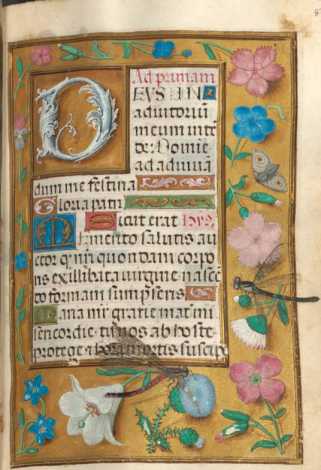 Ad primam
DEVS IN
adiutoriū
meum inte
de· Domine
ad adiuuā
dum me festina
Gloria patri
Sicut erat Hys
Memento salutis au
ctor q̄ nr̄i quondam corpo
ris ex illibata virgine nascē
do formam sumpseris
Maria mr̄ gratie mat̄ mi
sericordie· tu nos ab hoste
protege & hora mortis suscip